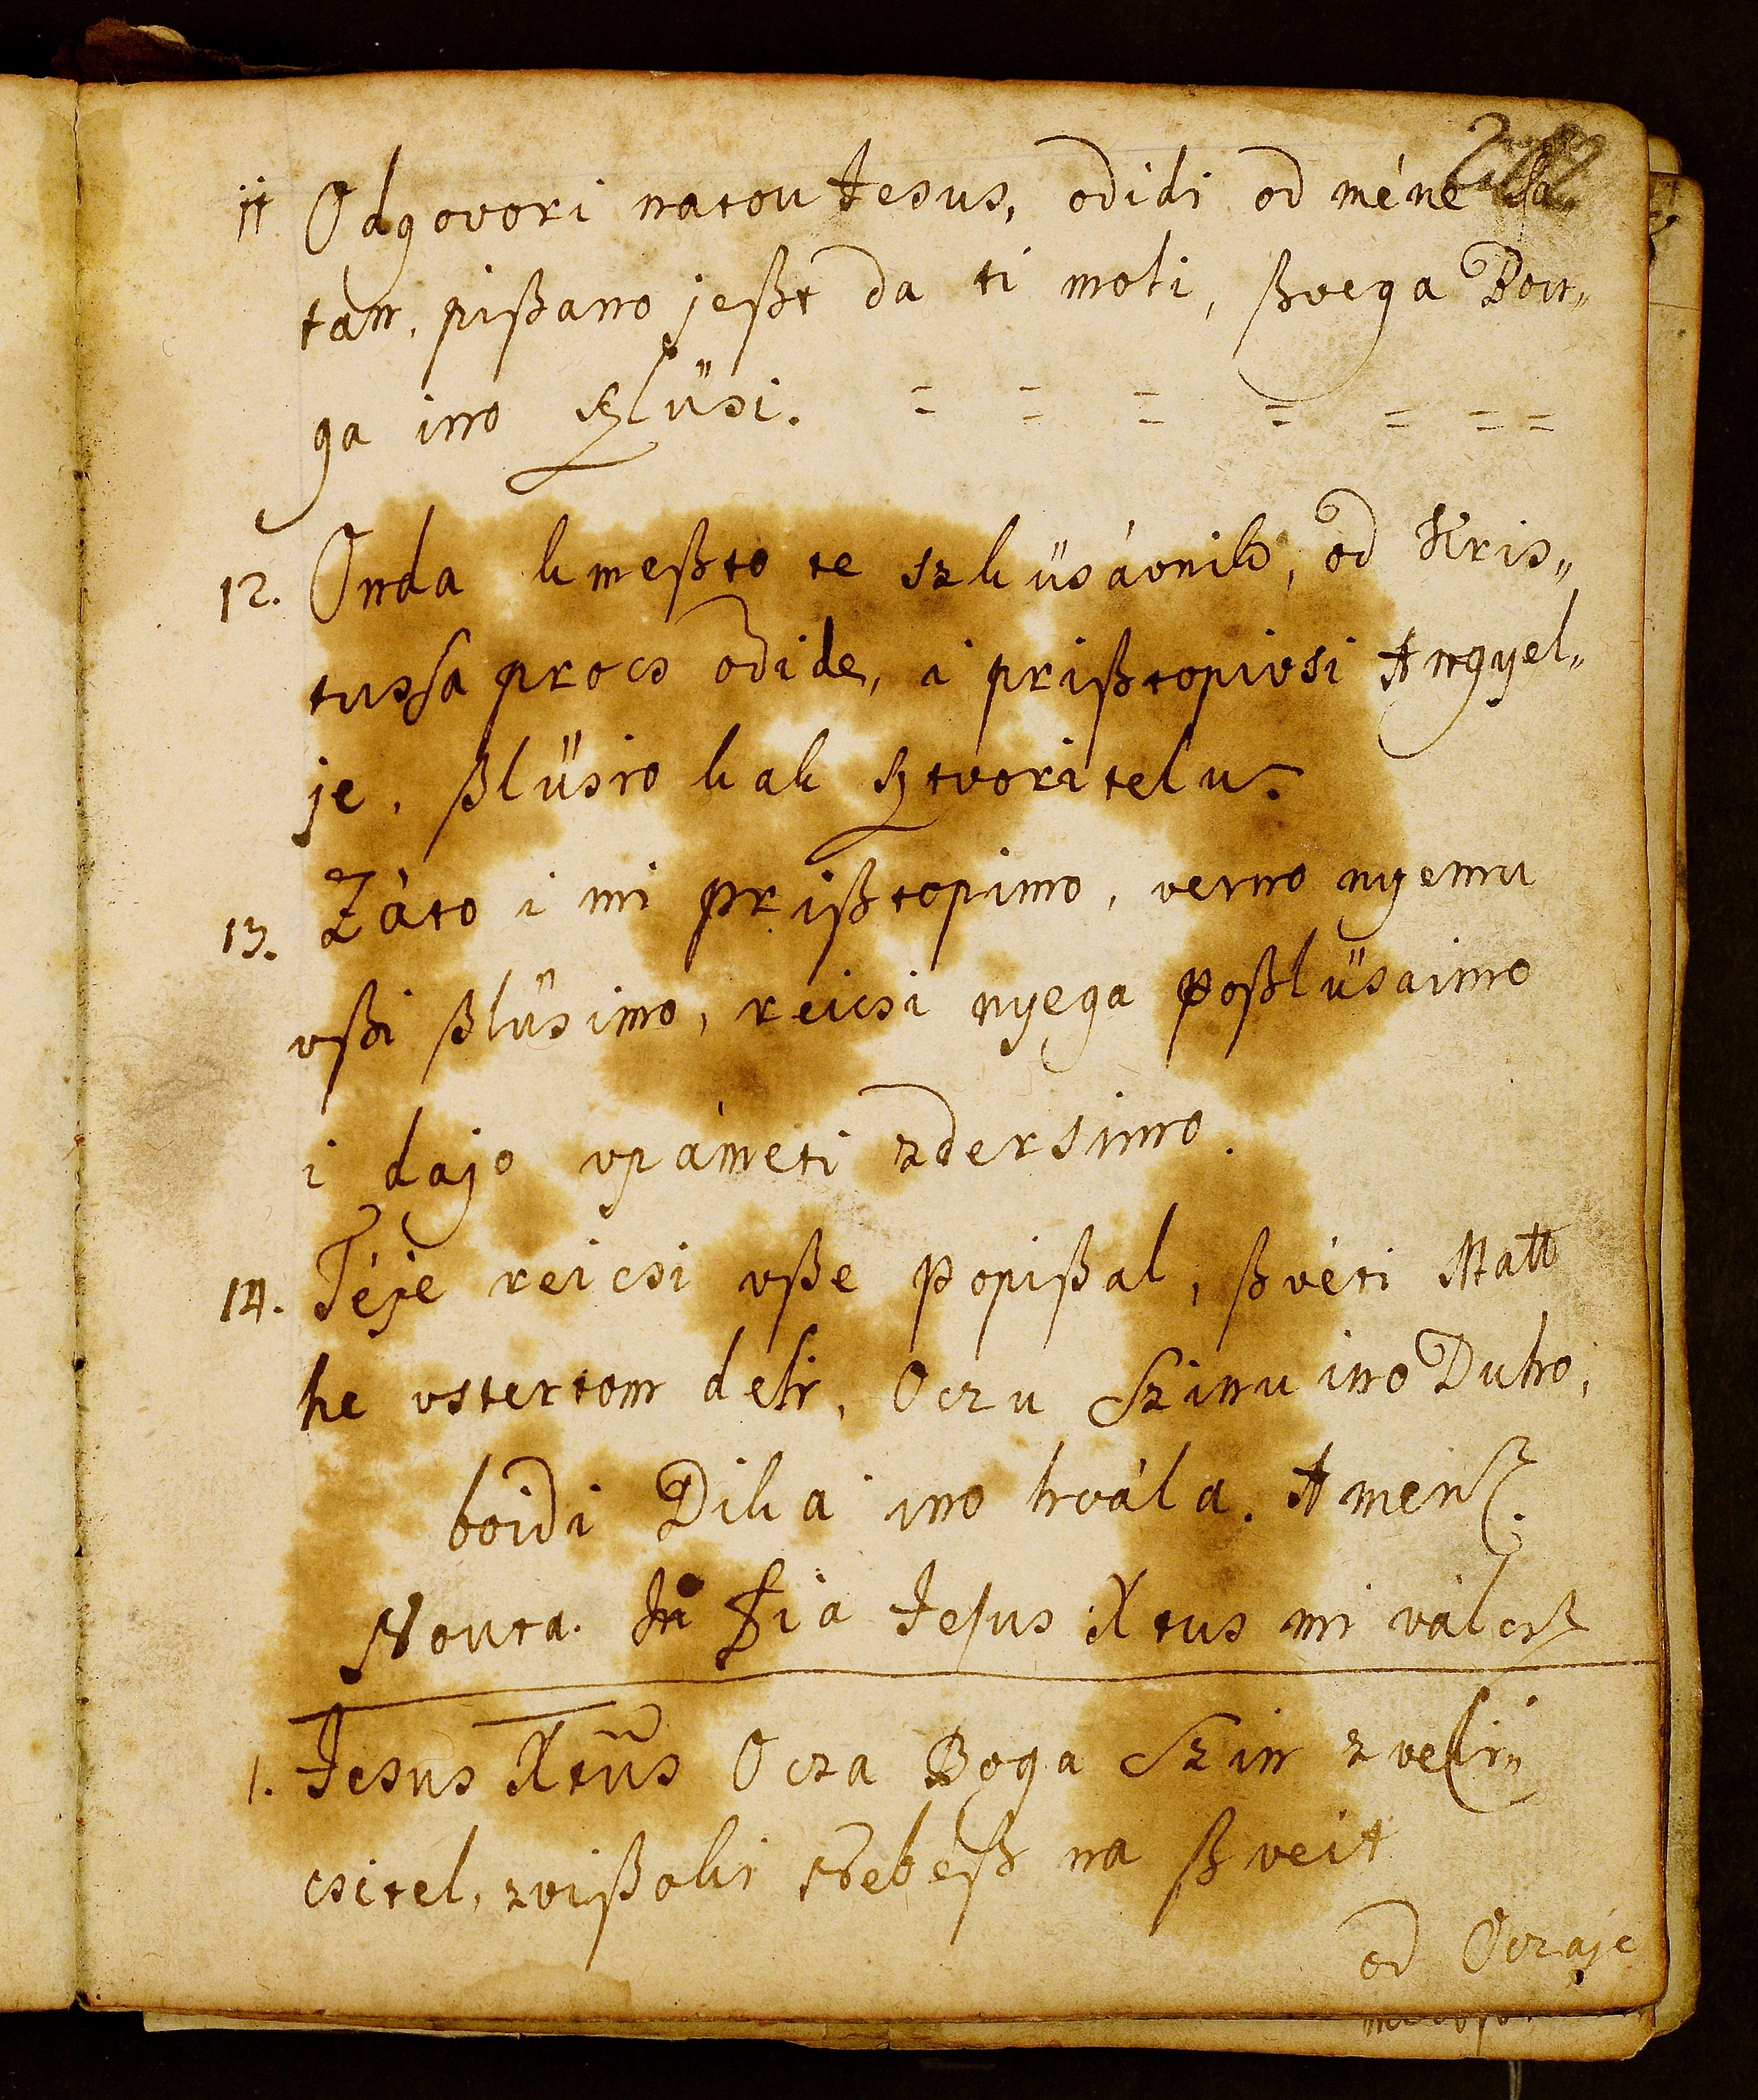 11 Odgovori natou Jesus, odidi od méne Sa,,
tan, pißano jeßt da ti moli, ßvega Bou,,
ga ino szlüsi. = = = = = = =
12. Onda kmeßto te szküsávnik, od Kris,,
tussa procs odide, i prißtopivsi Angyel,,
je, ßlüsio kak sztvoritelu.
13. Záto i mi prißtopimo, verno nyemu
vßi ßlüsimo, reicsi nyega poßlüsaimo
i dajo vpámeti zdersimo.
14. Téje reicsi vße popißal, ßvéti Matt
he vstertom deli, Oczu Szinu ino Duho,
boidi Dika ino hvála. Amen.
Nouta. Jesus Xtus mi
1. Jesus Xtus Ocza Boga Szin zveli,,
csitel, zvißoki Nebéß na ßveit
od Oczaje